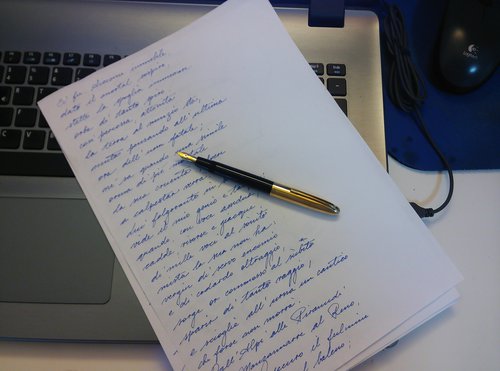 Ei fu siccome immobile,
dato il mortal sospiro,
stette la spoglia immemore
orba di tanto spiro,
così percossa, attonita
la terra al nunzio sta,
muta pensando all'ultima
ora dell'uom fatale;
nè sa quando una simile
orma di piè mortale
la sua cruenta
a calpestar verrà
Lui folgorante in
vide il mio genio e
quando, con vece assidua
cadde, risorse e giacque
di mille voci al sonito
mista la sua non ha:
vergin di servo encomio
e di codardo oltraggio,
sorge or commosso al subito
sparir di tanto raggio;
e scioglie all'urna un cantico
che forse non morrà.
Dall'Alpi alle Piramidi
Manzanarre al Reno,
securo il fulmine
al baleno;
Logitech